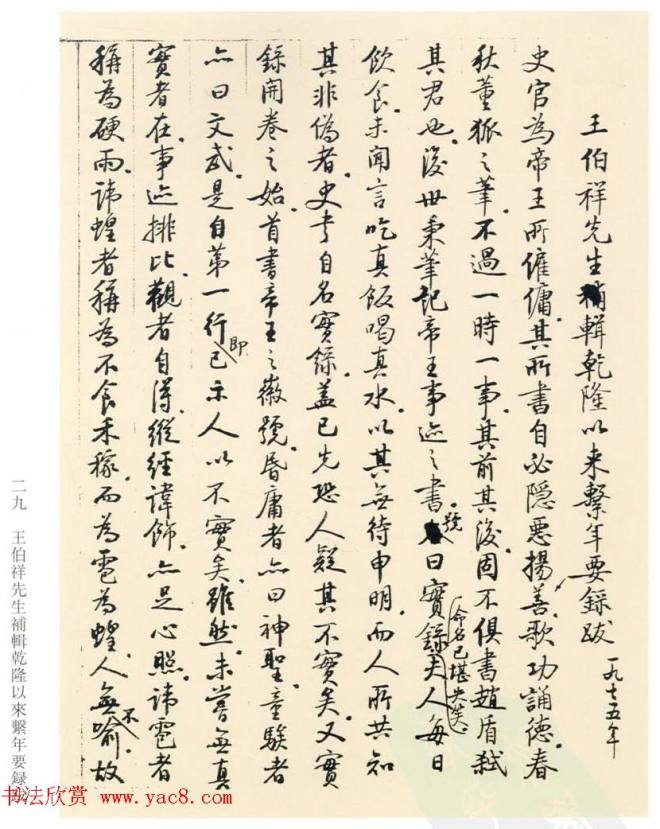 王伯祥先生補輯乾隆以来繫年要錄跋 一九七五年
史官為帝王所僱傭。其所書自必隐惡揚善。歌功誦德。春
秋董狐之筆。不過一時一事。其前其後。固不俱書趙盾弑
其君也。後世秉筆記帝王事迹之書。號曰實錄。命名已堪失笑。夫人每日
飲食。未聞言吃真飯喝真水。以其無待申明。而人所共知
其非偽者。史書自名實錄。蓋已先恐人疑其不實矣。又實
錄開卷之始。首書帝王之徽號。昏庸者亦曰神聖。童騃者
亦曰文武。是自第一行即已示人以不實矣。雖然。未嘗無真
實者在。事迹排比。觀者自得。縱經諱飾。亦是心照。諱雹者
稱為硬雨。諱蝗者稱為不食禾稼。而為雹為蝗。人無不喻。故
二九 王伯祥先生補輯乾隆以來繫年要録跋
书法欣赏 www.yac8.com